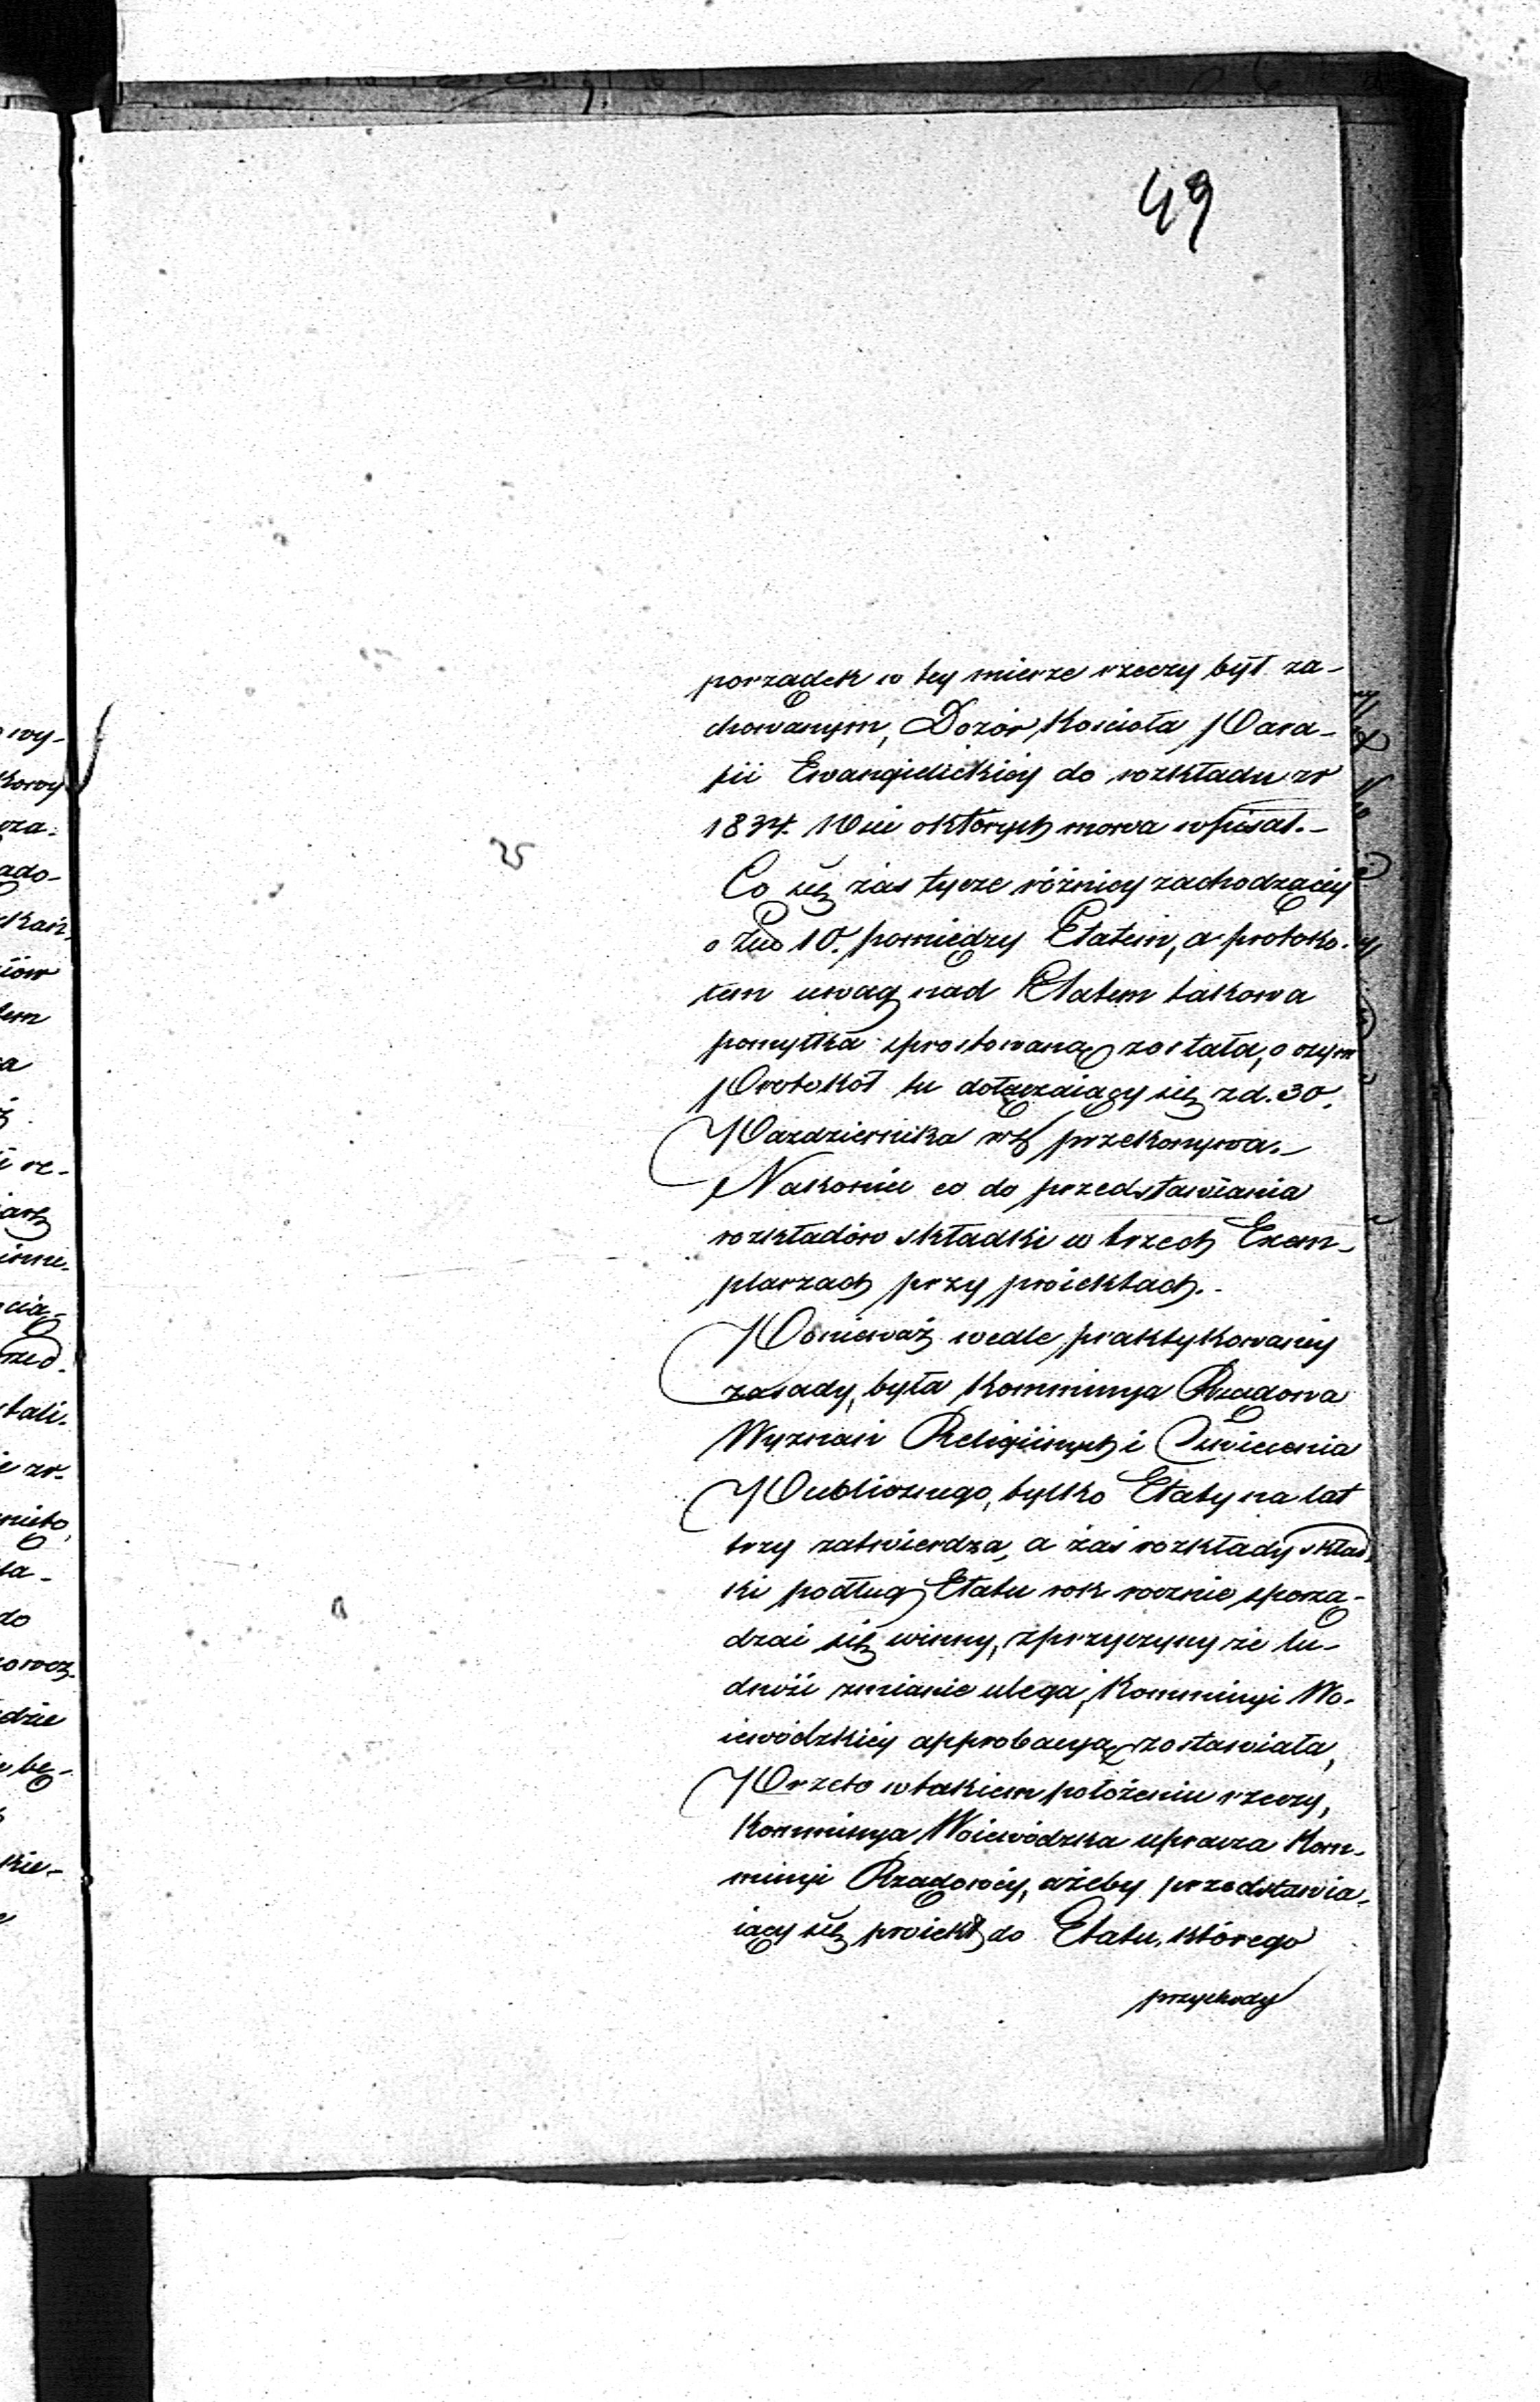 49
porządek w tey mierze rzeczy był za-
chowanym, Dozór Kościoła Para-
fii Ewangielickiey do rozkładu zr
1834. Wsie o których mowa wpisał.-
Co się zas tycze różnicy zachodzącey
o Złt 10. pomiędzy Etatem, a protoko-
łem uwag nad Etatem takowa
pomyłka sprostowaną została, o czym
Protokół tu dołączaiący się z d. 30.
Pazdziernika rb przekonywa.-
Nakoniec co do przedstawiania
rozkładów składki w trzech Exem-
plarzach przy proiektach.-
Ponieważ wedle praktykowaney
zasady, była Kommissya Rządowa
Wyznań Religiinych i Oświecenia
Publicznego, tylko Etaty na lat
trzy zatwierdza, a zaś rozkłady skład-
ki podług Etatu rok rocznie sporzą-
dzać się winny, z przyczyny że lu-
dność zmianie ulega, Kommissyi Wo-
iewódzkiey approbacyą zostawiała,
Przeto w takiem położeniu rzeczy,
Kommissya Woiewódzka uprasza Kom-
missyi Rządowéy, ażeby przedstawia-
iący się proiekt do Etatu, którego
przychody